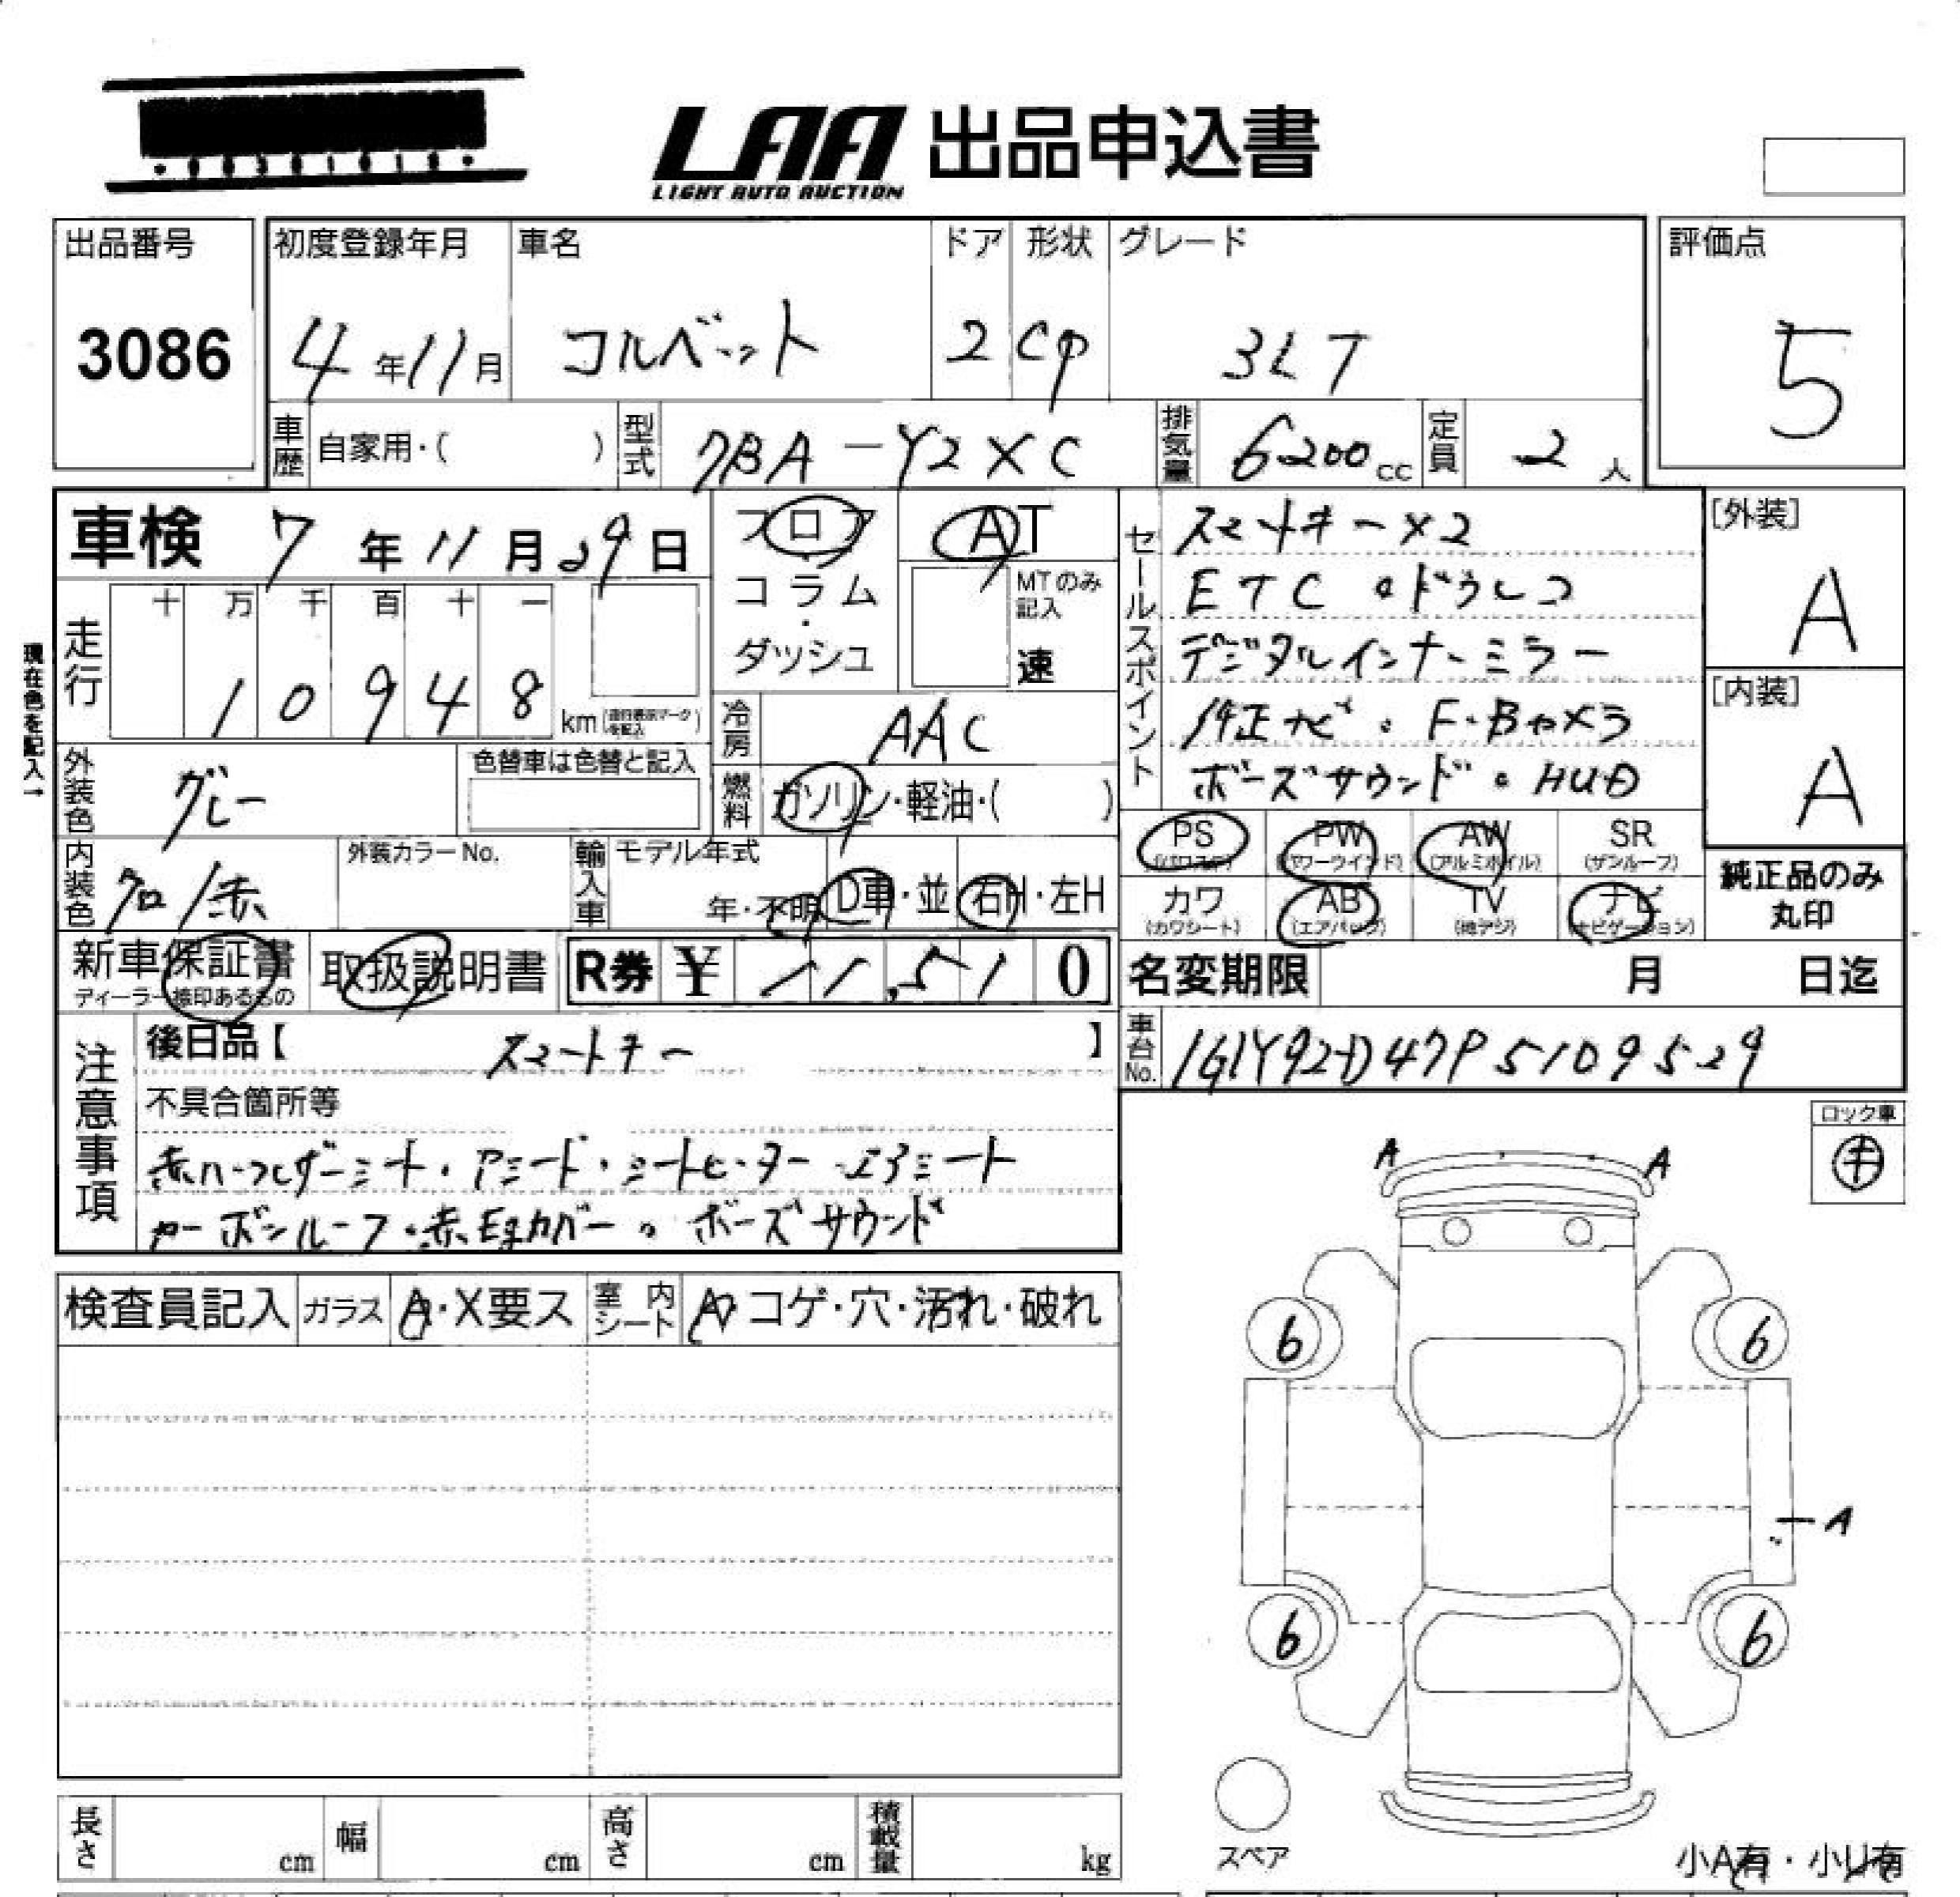 LAA 出品申込書
LIGHT AUTO AUCTION
出品番号
3086
初度登録年月
4年11月
車名
コルベット
ドア
2
形状
cp
グレード
3LT
評価点
5
車歴 自家用・( )
型式 7BA-Y2XC
排気量 6200cc
定員 2人
車検 7年11月29日
フロア・コラム・ダッシュ
AT
MTのみ記入
速
現在色を記入→
走行
十 万 千 百 十 一
1 0 9 4 8 km
冷房 AAC
燃料 ガソリン・軽油・( )
外装色 グレー
色替車は色替と記入
内装色 クロ/赤
外装カラーNo.
輸入車 モデル年式
年・不明
D車・並
右H・左H
セールスポイント
スマートキー×2
ETC・ドラレコ
デジタルインナーミラー
純正ナビ・F・Bカメラ
ボーズサウンド・HUD
[外装]
A
[内装]
A
PS PW AW SR
(パワステ) (パワーウインド) (アルミホイル) (サンルーフ)
カワ AB TV ナビ
(カワシート) (エアバック) (地デジ) (ナビゲーション)
純正品のみ
丸印
新車保証書
ディーラー捺印あるもの
取扱説明書
R券 ¥11,510
名変期限 月 日迄
車台No. 1G1Y92D47P5109529
注意事項
後日品【 スマートキー 】
不具合箇所等
赤ハーフレザーシート・Pシート・シートヒーター・エアシート
カーボンルーフ・赤Egカバー・ボーズサウンド
ロック車
キ
A A
検査員記入 ガラス A・X要ス 室内シート A・コゲ・穴・汚れ・破れ
6 6
A
6 6
スペア
小A有・小U有
長さ cm 幅 cm 高さ cm 積載量 kg